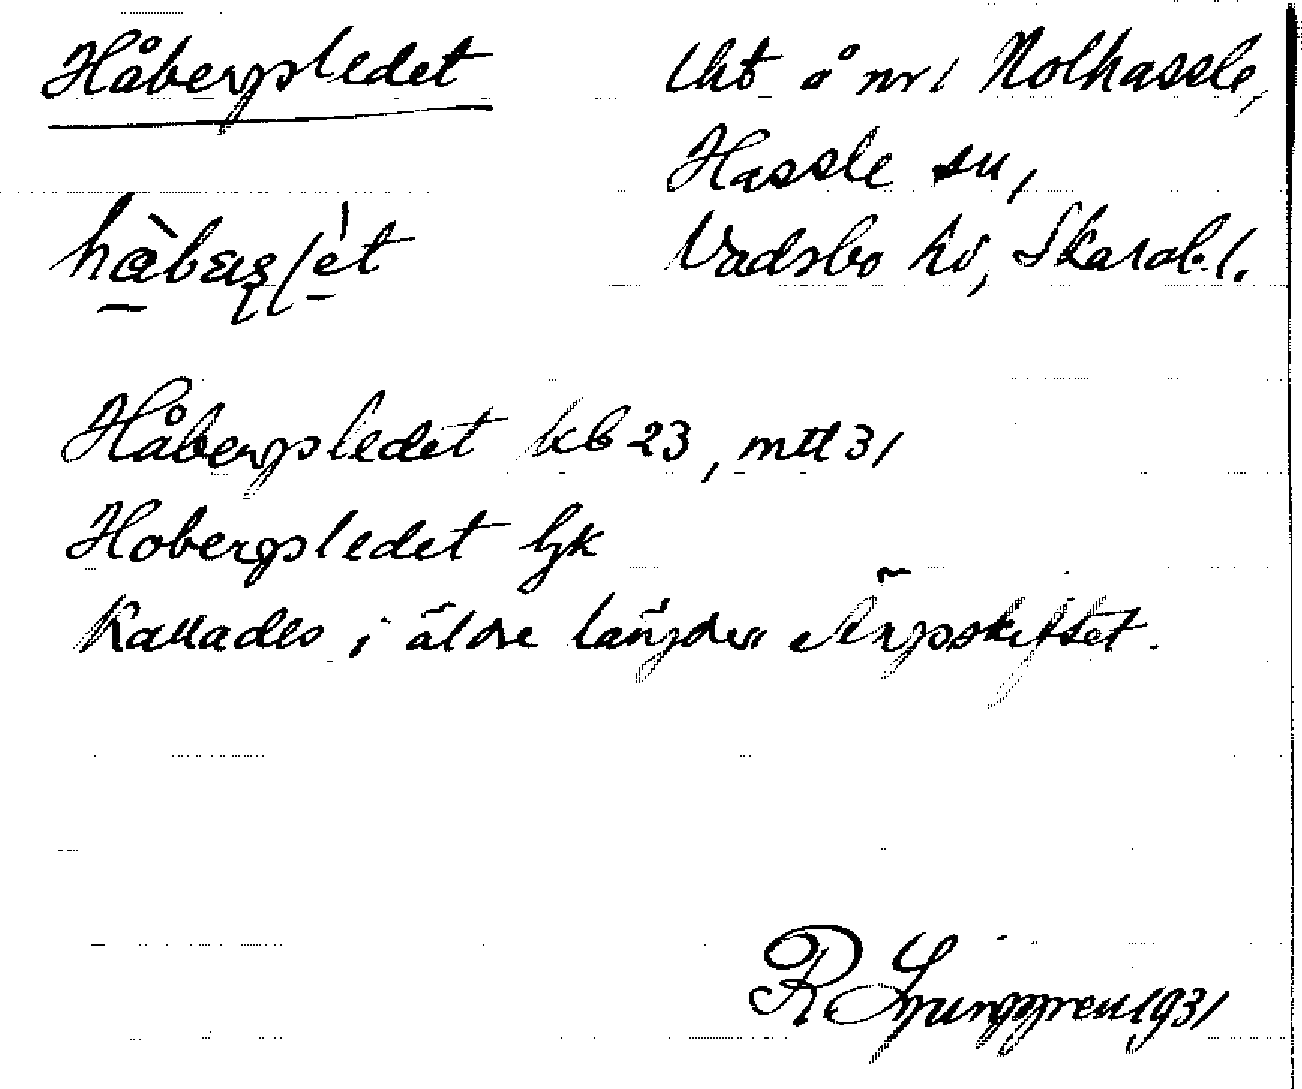 Håbergsledet
lht å nr 1 Nolhassle,
Hassle sn,
Vadsbo hd, Skarab. l.
Håbergsledet kb 23, mtl 31
Hobergsledet Gjk
Kallades i äldre längder Ängsskiftet.
R Ljunggren 1931